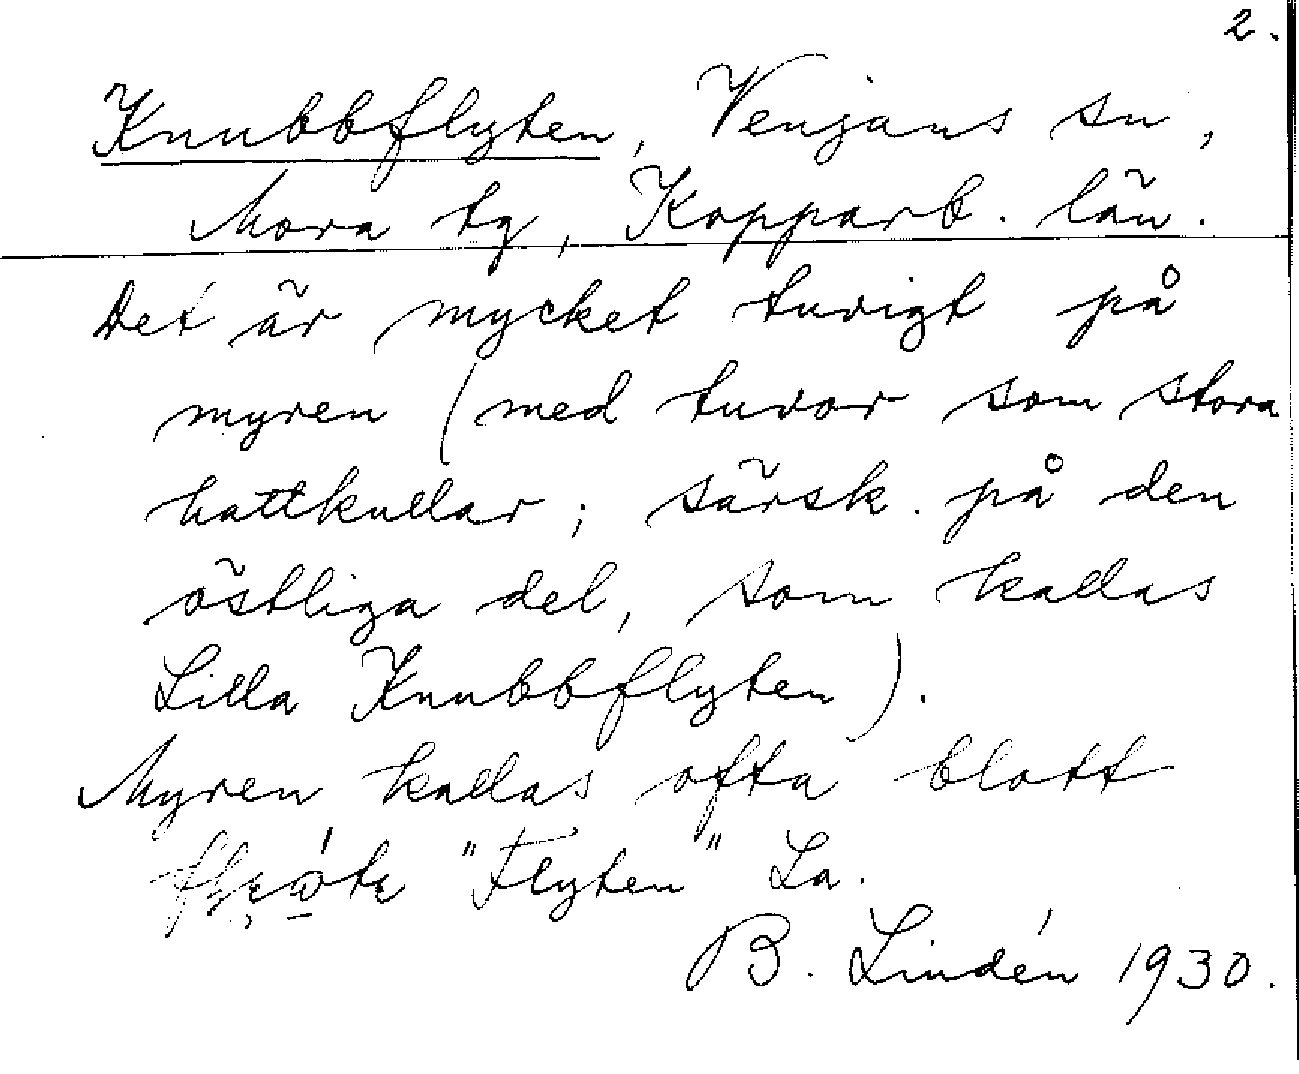 2.
Knubbflyten, Venjans sn,
Mora tg, Kopparb. län.
Det är mycket tuvigt på
myren (med tuvor som stora
hattkullar; särsk. på den
östliga del, som kallas
Lilla Knubbflyten).
Myren kallas ofta blott
"Flyten" La.
B. Lindén 1930.